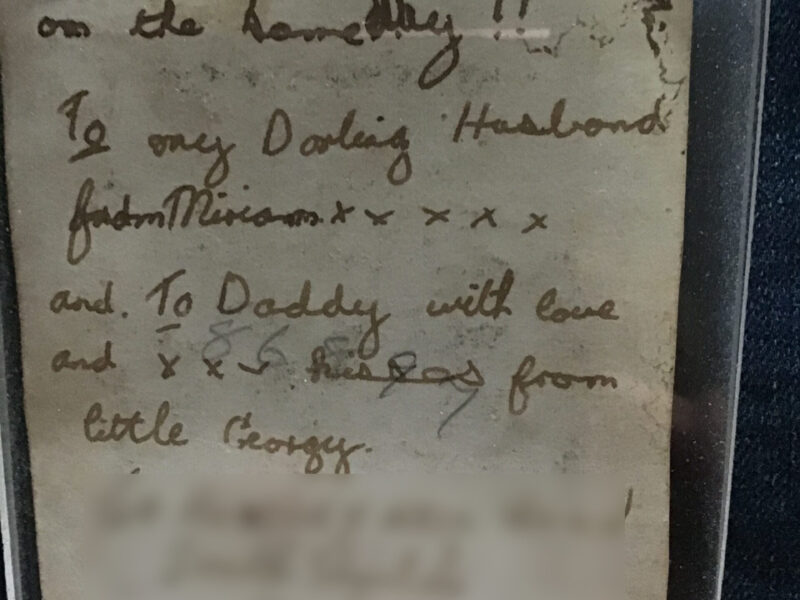 on the same day !!
To my Darling Husband
from Miriam x x x x x
and. To Daddy with love
and x x x kisses from
little Georgy.